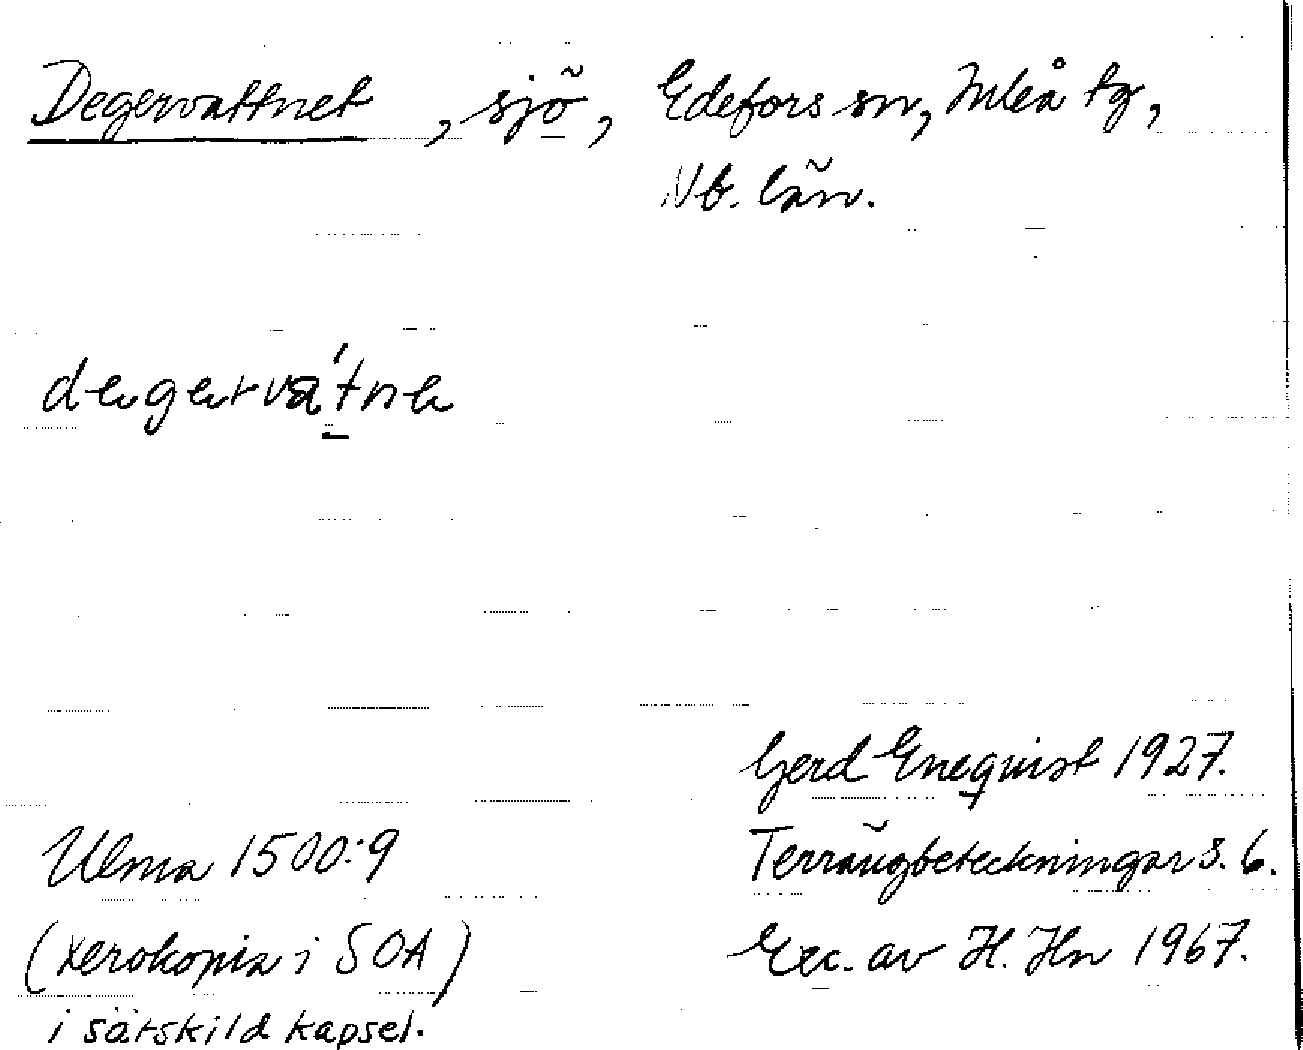 Degervattnet, sjö, Edefors sn, Luleå tg,
Nb. län.
degervat́ne
Gerd Enequist 1927.
Ulma 1500:9
Terrängbeteckningar s. 6.
(Xerokopia i SOA)
Exc. av H. Hn 1967.
i särskild kapsel.